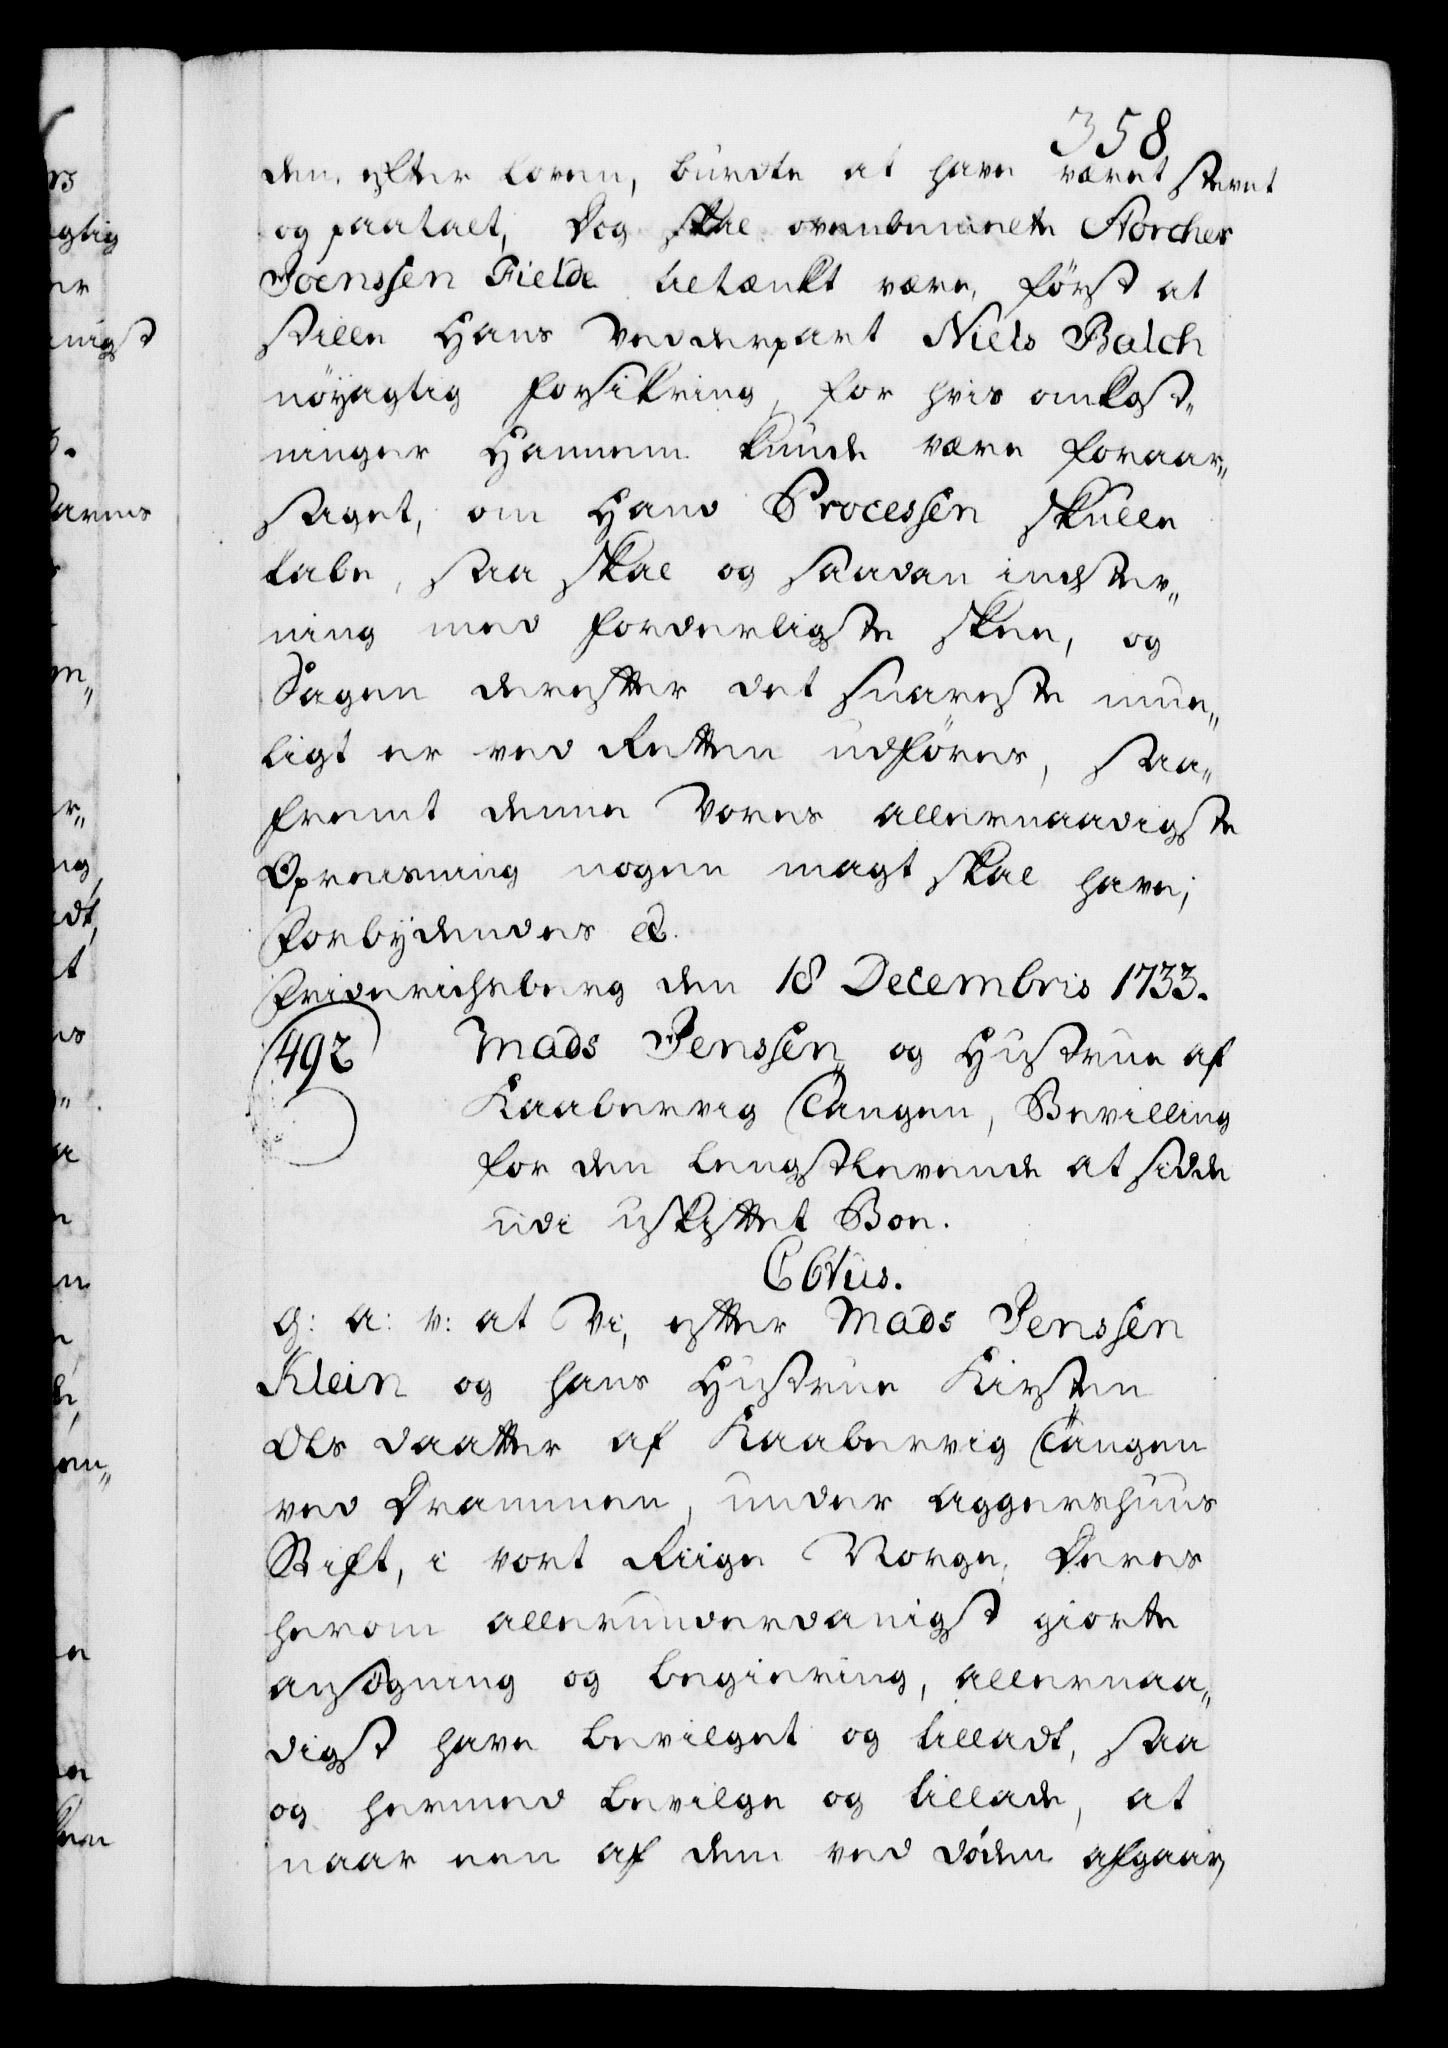 358
den, efter Loven, burdte at have været stevnt
og paatalt, Dog skal ovenbemelte Norches
Joenssen Fielde betænkt være, først at
stille Hans Vedderpart Niels Balch
nöyagtig forsikring, for hvis omkost„
ninger Hannem kunde være foraar„
saget, om Hand Processen skulle
tabe, saa skal og saadan indstev„
ning med forderligste skee, og
Sagen derefter det snareste mue„
ligt er ved Retten udføres, saa„
fremt denne Vores allernaadigste
Opreisning nogen magt skal have;
Forbydendes &.
Friderichsberg den 18 Decembris 1733.
492 Mads Jenssen og Hustrue af
Kaabervig Tangen, Bevilling
for den Lengstlevende at sidde
udi uskiftet Boe.
C6tus.
G: A: V: at Vi, efter Mads Jenssen
Klein og hans Hustrue Kirsten
Ols daatter af Kaabervig Tangen
ved Drammen, under Aggershuus
Stift, i vort Riige Norge, Deres
herom allerunderdanigst giorte
ansøgning og begiering, allernaa„
digst have bevilget og tilladt, saa
og hermed bevilge og tillade, at
naar een af dem ved døden afgaar,